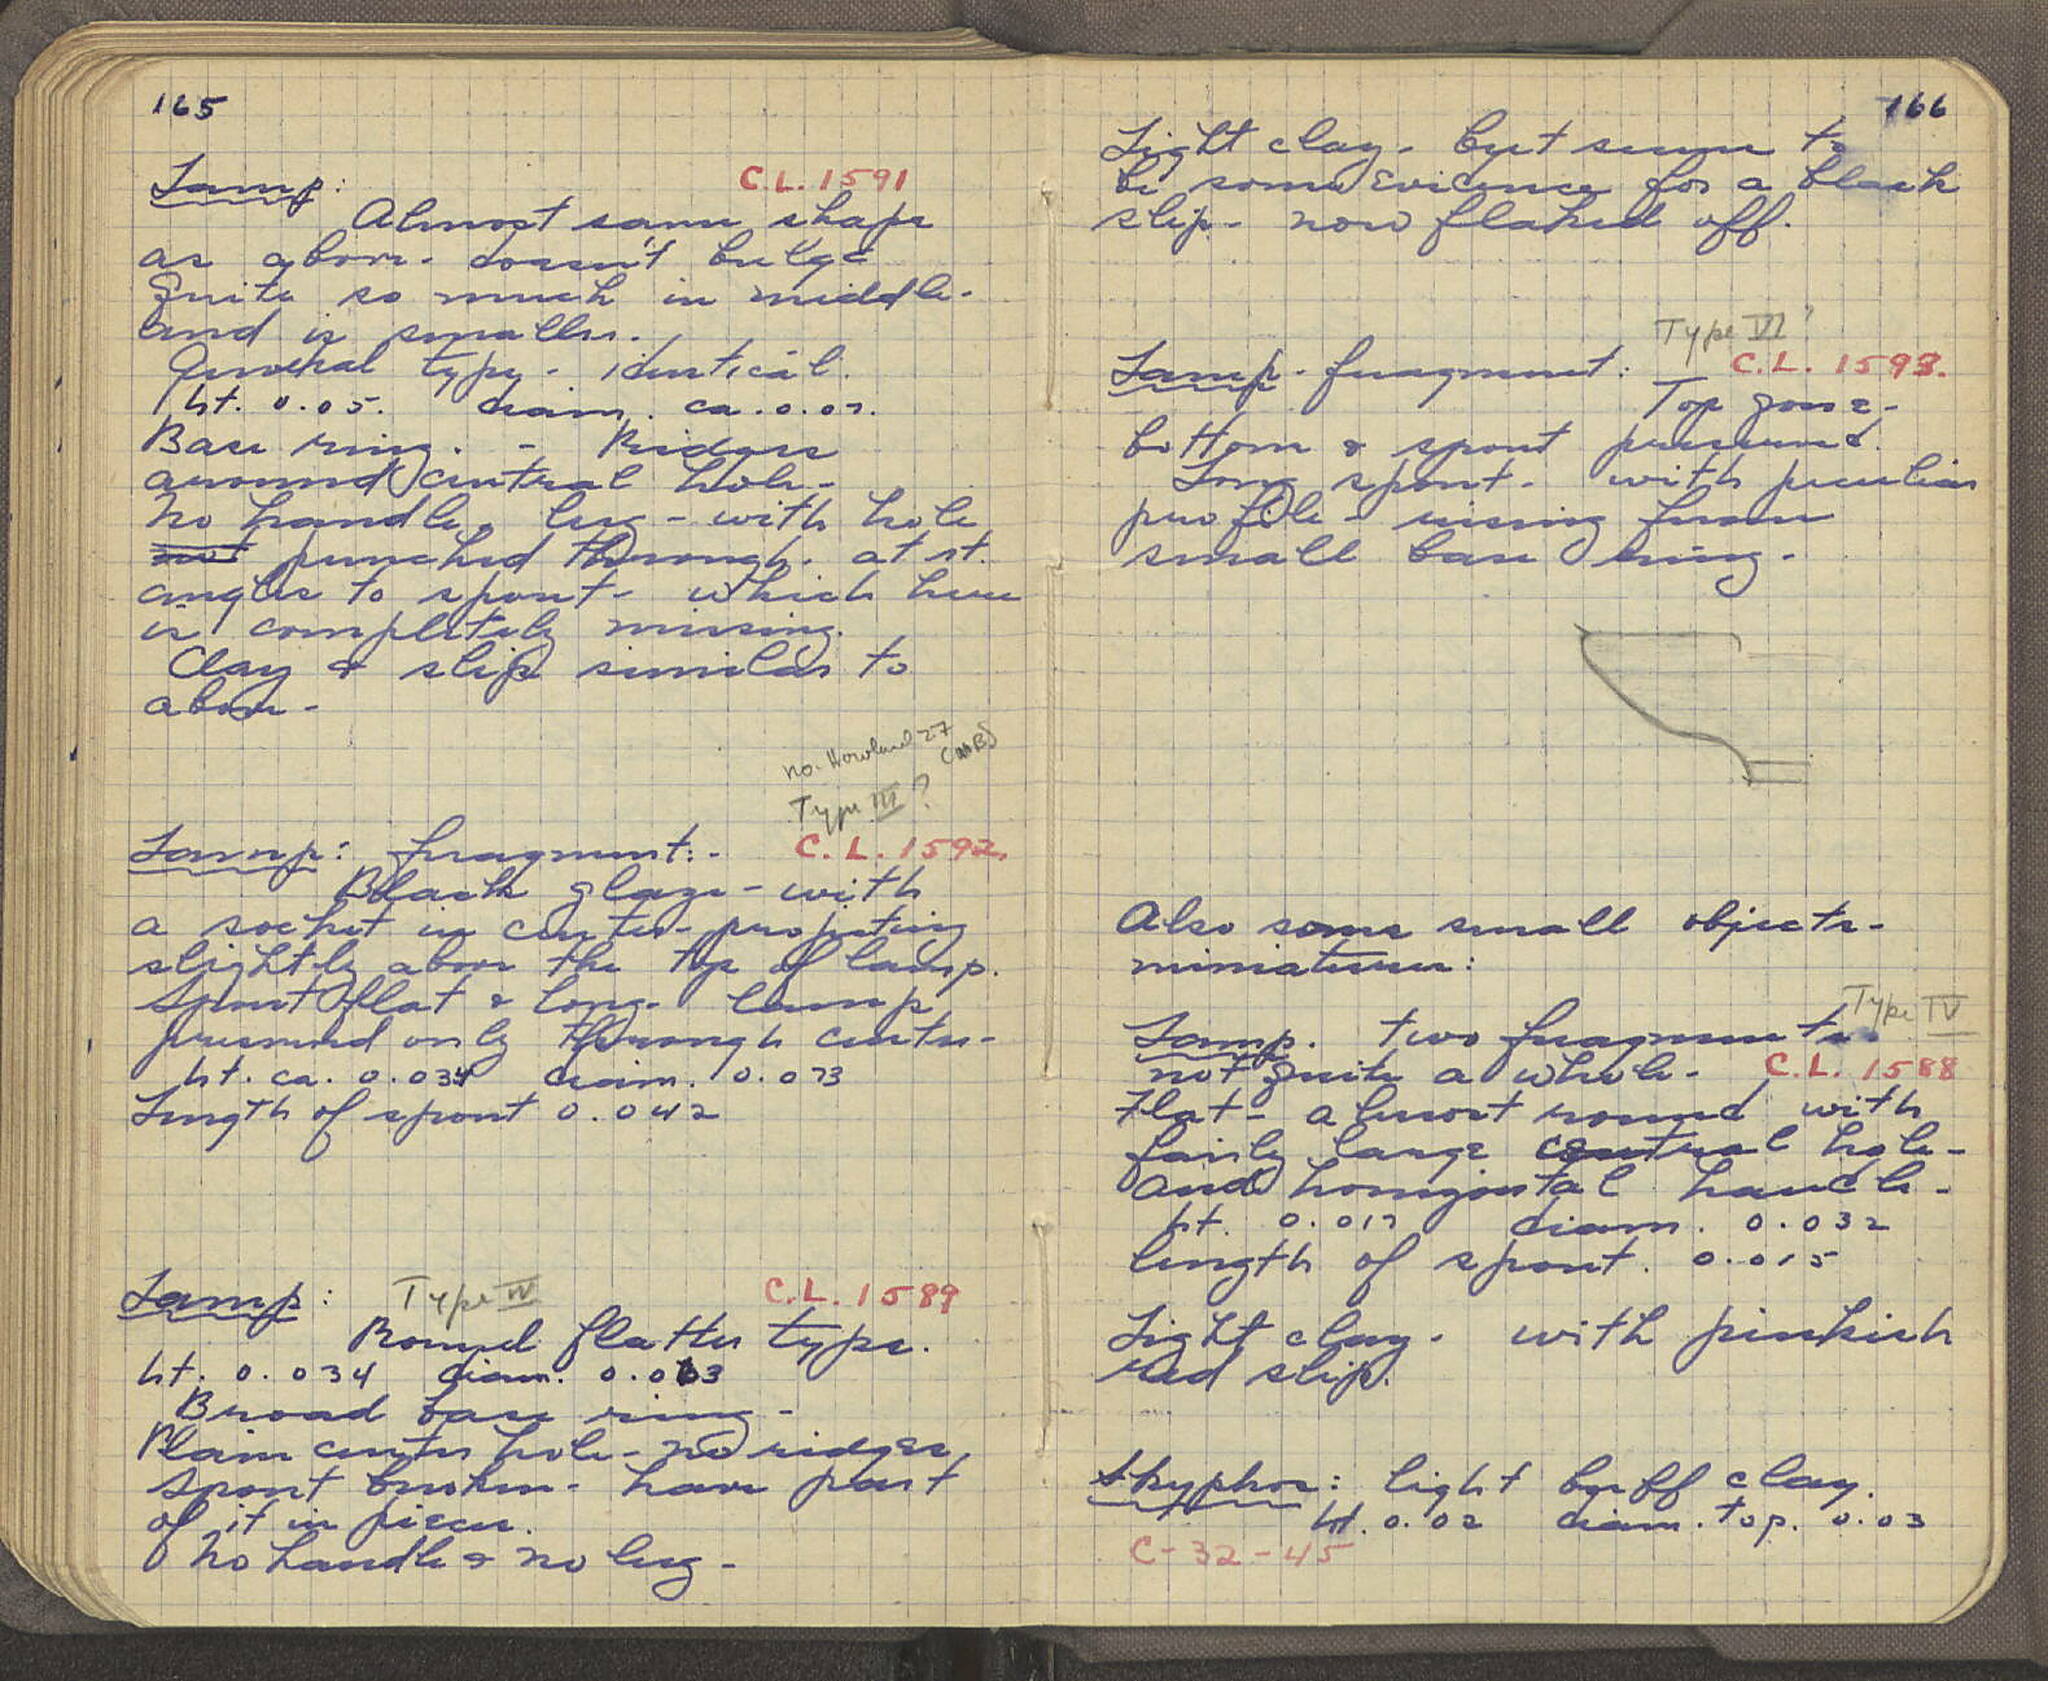 165
Lamp: C.L. 1591
Almost same shape
as above - doesn't bulge
quite so much in middle -
and is smaller.
General type - identical.
ht. 0.05. diam. ca. 0.07.
Base ring. - Ridges
around central hole -
No handle, lug - with hole
not punched through. at rt.
angles to spout - which here
is completely missing.
Clay & slip similar to
above -
no. Howland 27
(MB)
Type III?
Lamp: fragment: - C.L. 1592.
Black glaze - with
a socket in center - projecting
slightly above the top of lamp.
Spout flat & long. lamp
preserved only through center -
ht. ca. 0.034 diam. 0.073
Length of spout 0.042
Lamp: Type IV C.L. 1589
Round flatter type.
ht. 0.034 diam. 0.063
Broad base ring -
Plain center hole - no ridges,
spout broken - have part
of it in pieces.
No handle & no lug -
166
Light clay - but seems to
be some evidence for a black
slip - now flaked off.
Type VI?
Lamp - fragment: C.L. 1593.
Top gone -
bottom & spout preserved.
Long spout - with peculiar
profile - rising from
small base ring -
Also some small objects -
miniatures:
Type IV
Lamp. two fragments
not quite a whole - C.L. 1588
Flat - almost round with
fairly large central hole -
and horizontal handle -
ht. 0.017 diam. 0.032
length of spout. 0.015
Light clay - with pinkish
red slip.
Skyphos: light buff clay.
ht. 0.02 diam. top. 0.03
C-32-45